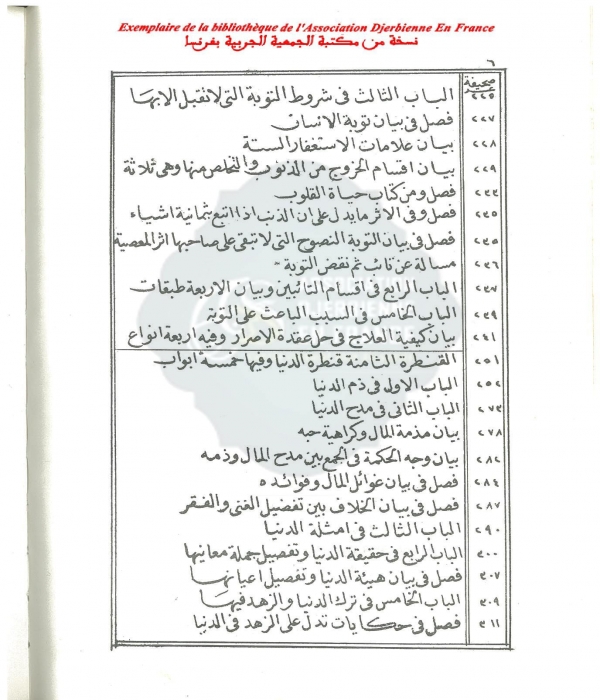 Exemplaire de la bibliothèque de l'Association Djerbienne En France
نسخة من مكتبة الجمعية الجربية بفرنسا
٦
صحيفة
٢٢٥ الباب الثالث فى شروط التوبة التى لا تقبل الا بها
٢٢٧ فصل فى بيان توبة الانسان
٢٢٨ بيان علامات الاستغفار الستة
٢٢٩ بيان اقسام الخروج من الذنوب والتخلص منها وهى ثلاثة
٢٣٣ فصل ومن كتاب حياة القلوب
٢٣٥ فصل وفى الاثر مايدل على ان الذنب اذا اتبع بثمانية اشياء
٢٣٥ فصل فى بيان التوبة النصوح التى لا تبقى على صاحبها اثر المعصية
٢٣٦ مسالة عن تائب ثم نقض التوبة
٢٣٧ الباب الرابع فى اقسام التائبين وبيان الاربعة طبقات
٢٣٩ الباب الخامس فى السبب الباعث على التوبة
٢٤١ بيان كيفية العلاج فى حل عقدة الاصرار وفيه اربعة انواع
٢٥١ القنطرة الثامنة قنطرة الدنيا وفيها خمسة ابواب
٢٥٢ الباب الاول فى ذم الدنيا
٢٧٣ الباب الثانى فى مدح الدنيا
٢٧٨ بيان مذمة المال وكراهية حبه
٢٨٢ بيان وجه الحكمة فى الجمع بين مدح المال وذمه
٢٨٤ فصل فى بيان غوائل المال وفوائده
٢٨٧ فصل فى بيان الخلاف بين تفضيل الغنى والفقر
٢٩٠ الباب الثالث فى امثلة الدنيا
٣٠٠ الباب الرابع فى حقيقة الدنيا وتفصيل جملة معانيها
٣٠٧ فصل فى بيان هيئة الدنيا وتفصيل اعيانها
٣٠٩ الباب الخامس فى ترك الدنيا والزهد فيها
٣١١ فصل فى حكايات تدل على الزهد فى الدنيا